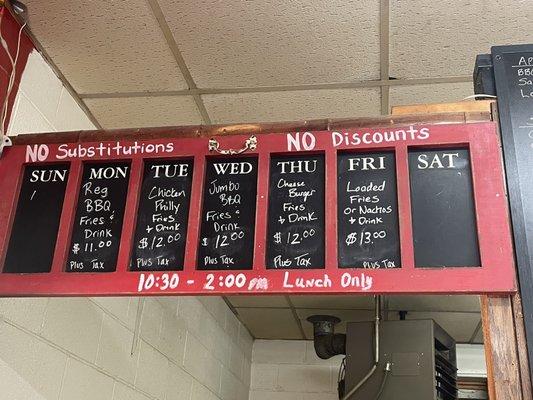 NO Substitutions
NO Discounts
SUN
MON
Reg
BBQ
Fries &
Drink
$11.00
Plus Tax
TUE
Chicken
Philly
Fries &
Drink
$12.00
Plus Tax
WED
Jumbo
BBQ
Fries &
Drink
$12.00
Plus Tax
THU
Cheese
Burger
Fries
& Drink
$12.00
Plus Tax
FRI
Loaded
Fries
or Nachos
& Drink
$13.00
Plus Tax
SAT
10:30 - 2:00 pm Lunch Only